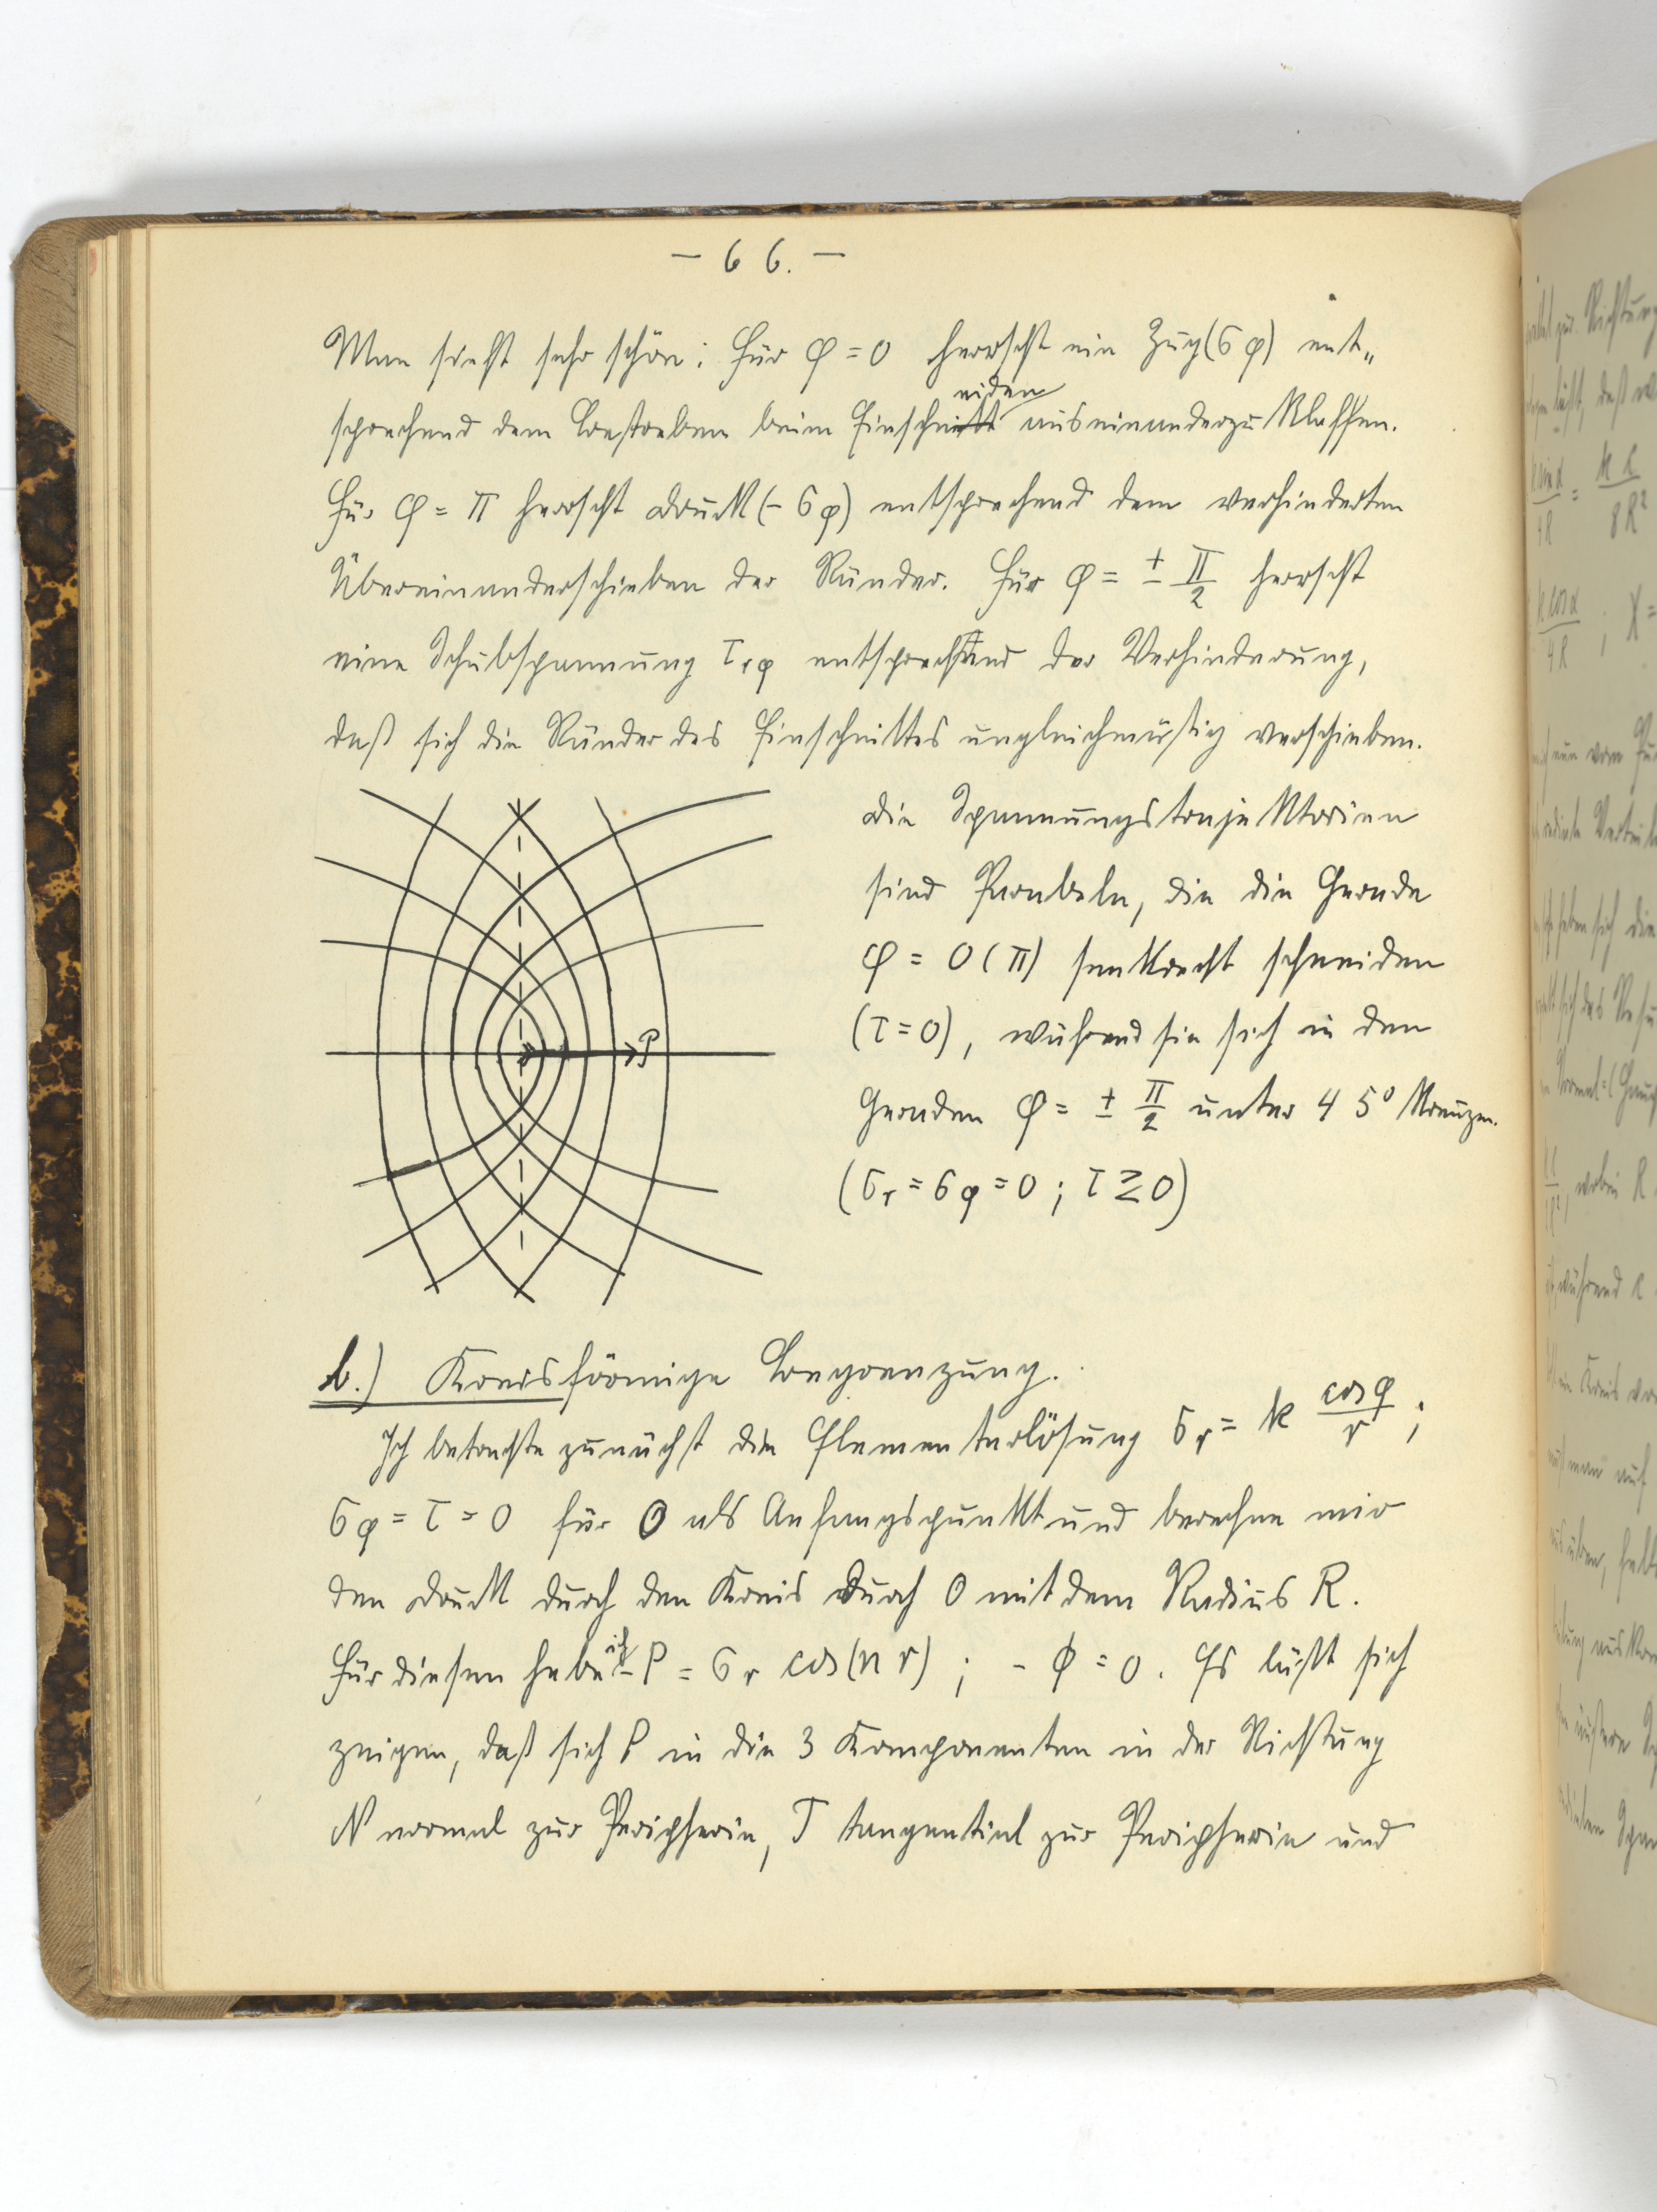 — 66. —
Man sieht sehr schön: Für φ = 0 herrscht ein Zug (σφ) ent„
sprechend dem Bestreben beim Einschneiden auseinanderzuklaffen.
Für φ = π herrscht Druck (- σφ) entsprechend dem verhinderten
Übereinanderschieben der Ränder. Für φ = ± π/2 herrscht
eine Schubspannung τrφ entsprechend der Verhinderung,
daß sich die Ränder des Einschnittes ungleichmäßig verschieben.
Die Spannungstrajektorien
sind Parabeln, die die Gerade
φ = 0 (π) senkrecht schneiden
(τ = 0), während sie sich in den
Geraden φ = ± π/2 unter 45° kreuzen.
(σr = σφ = 0 ; τ ≷ 0)
P
b.) Kreisförmige Begrenzung.
Ich betrachte zunächst die Elementarlösung σr = k cos φ/r ;
σφ = τ = 0 für O als Anfangspunkt und berechne mir
den Druck durch den Kreis durch O mit dem Radius R.
Für diesen habe ich - P = σr cos(n r) ; - ϕ = 0. Es läßt sich
zeigen, daß sich P in die 3 Komponenten in der Richtung
N normal zur Peripherie, T tangential zur Peripherie und